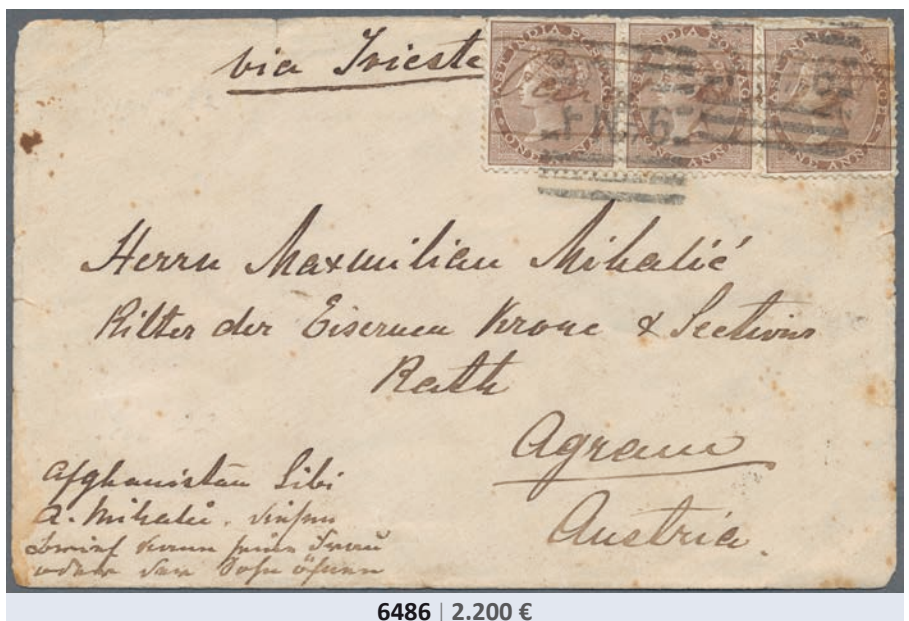 via Trieste
EAST INDIA POSTAGE
ONE ANNA
EAST INDIA POSTAGE
ONE ANNA
EAST INDIA POSTAGE
ONE ANNA
Herrn Maxmilian Mihalić
Ritter der Eisernen Krone & Sections
Rath
Agram
Austria.
Afghanistan Sibi
A. Mihalić. Diesen
Brief kann seine Frau
oder der Sohn öfnen
6486 | 2.200 €